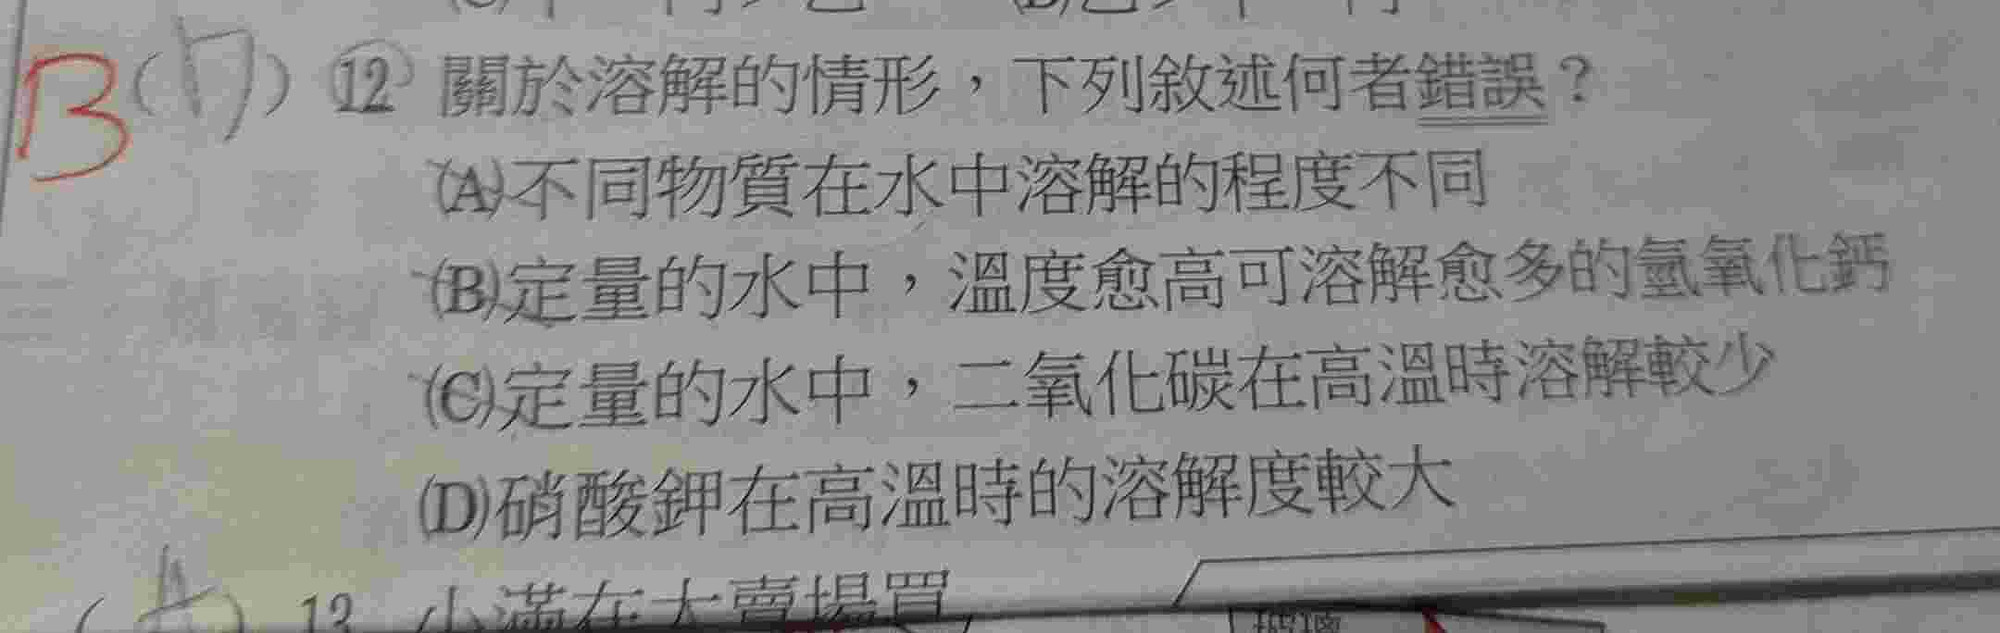 B(D)⑫ 關於溶解的情形，下列敘述何者錯誤？
(A)不同物質在水中溶解的程度不同
(B)定量的水中，溫度愈高可溶解愈多的氫氧化鈣
(C)定量的水中，二氧化碳在高溫時溶解較少
(D)硝酸鉀在高溫時的溶解度較大
(A) 13 小滿在大賣場買